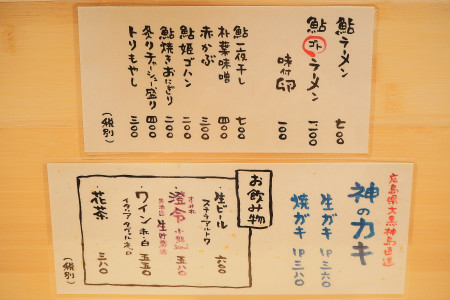 鮎ラーメン 七〇〇
鮎ゴトラーメン 一、二〇〇
味付卵 一〇〇
鮎一夜干し 七〇〇
朴葉味噌 四〇〇
赤かぶ 三〇〇
鮎姫ゴハン 二〇〇
鮎焼きおにぎり 二〇〇
炙りチャーシュー盛り 四〇〇
トリもやし 三〇〇
(税別)
広島県大黒神島直送
神のカキ
生ガキ 1P 三六〇
焼ガキ 1P 三八〇
お飲み物
生ビール 六〇〇
澄令 五八〇
生貯蔵酒
ワイン 赤・白 五五〇
花茶 三八〇
(税別)